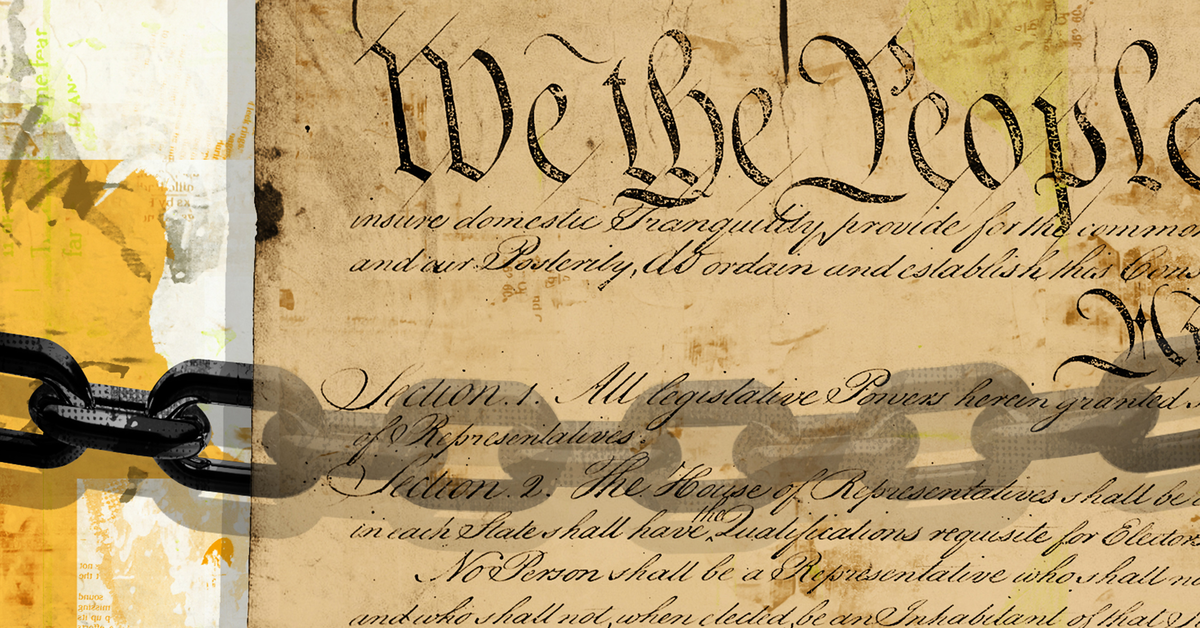 We the People
insure domestic Tranquility, provide for the common
and our Posterity, do ordain and establish this Cons
Section. 1. All legislative Powers herein granted
of Representatives.
Section. 2. The House of Representatives shall be
in each State shall have the Qualifications requisite for Electors
No Person shall be a Representative who shall not
and who shall not, when elected, be an Inhabitant of that